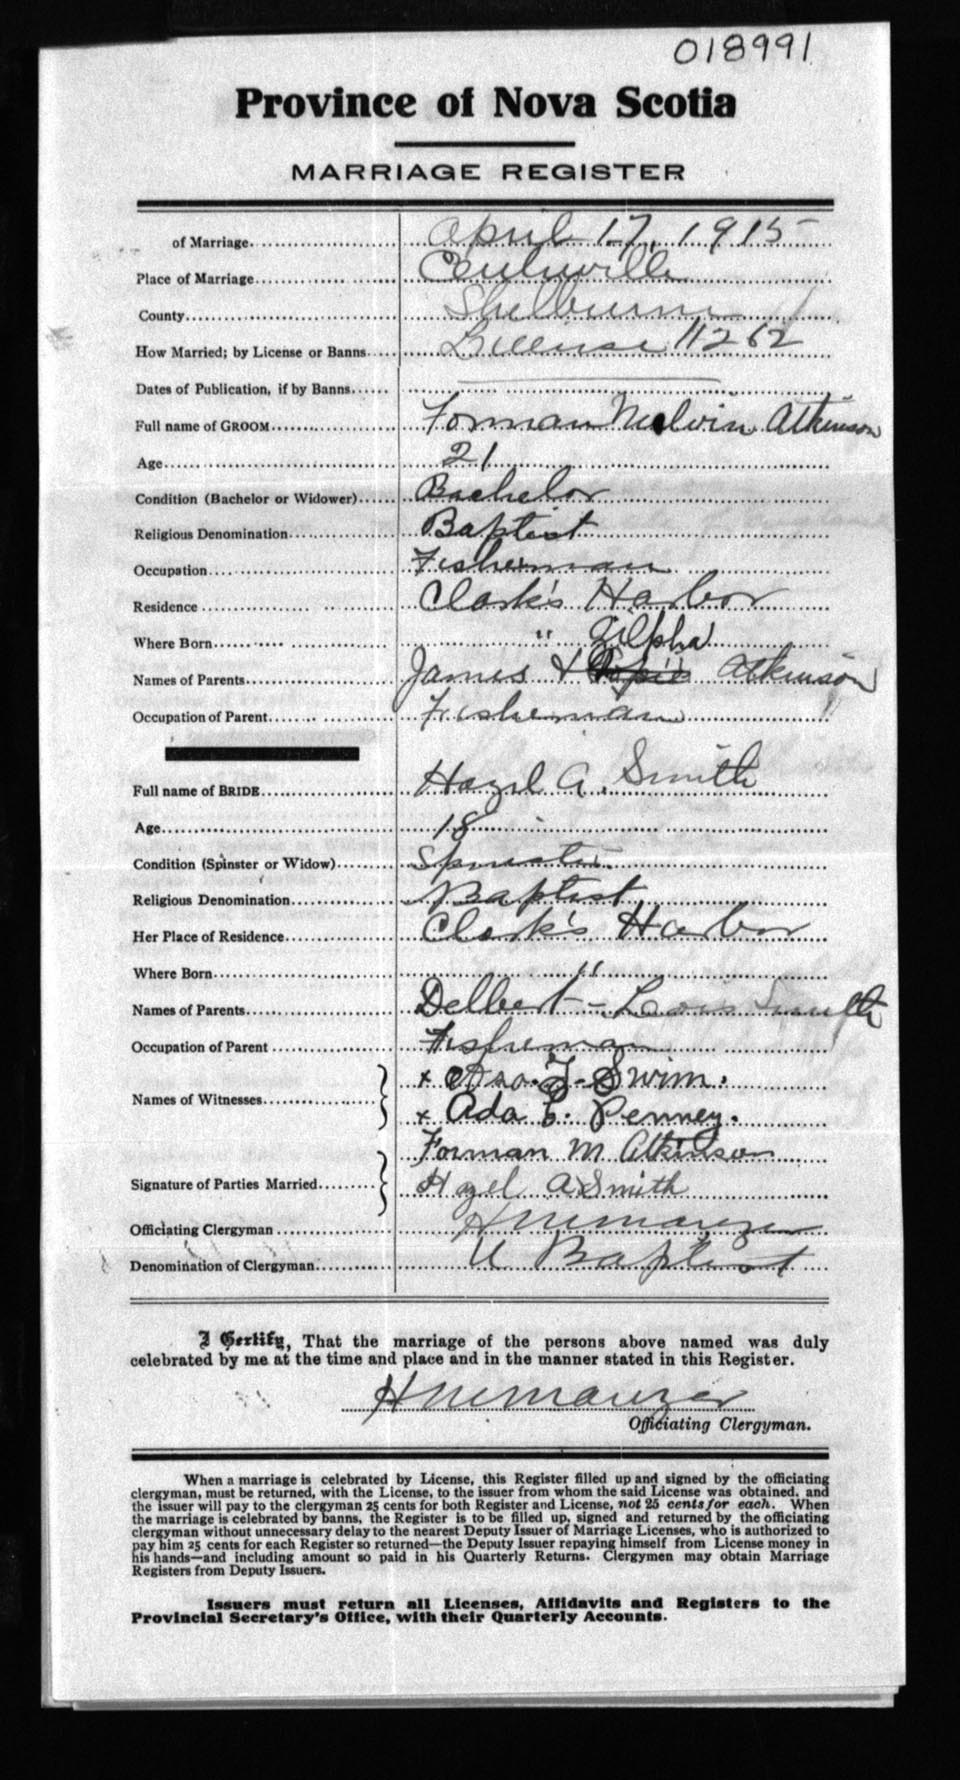 018991
Province of Nova Scotia
MARRIAGE REGISTER
of Marriage April 17, 1915
Place of Marriage Centreville
County Shelburne
How Married; by License or Banns License 11262
Dates of Publication, if by Banns
Full name of GROOM Forman Melvin Atkinson
Age 21
Condition (Bachelor or Widower) Bachelor
Religious Denomination Baptist
Occupation Fisherman
Residence Clark's Harbor
Where Born "
Zilpha
Names of Parents James & Atkinson
Occupation of Parent Fisherman
Full name of BRIDE Hazel A. Smith
Age 18
Condition (Spinster or Widow) Spinster
Religious Denomination Baptist
Her Place of Residence Clark's Harbor
Where Born "
Names of Parents Delbert - Lois Smith
Occupation of Parent Fisherman
Names of Witnesses x Asa. J. Swim.
x Ada E. Penney.
Forman M Atkinson
Signature of Parties Married Hazel A Smith
Officiating Clergyman
Denomination of Clergyman U Baptist
I Certify, That the marriage of the persons above named was duly
celebrated by me at the time and place and in the manner stated in this Register.
Officiating Clergyman.
When a marriage is celebrated by License, this Register filled up and signed by the officiating
clergyman, must be returned, with the License, to the issuer from whom the said License was obtained, and
the issuer will pay to the clergyman 25 cents for both Register and License, not 25 cents for each. When
the marriage is celebrated by banns, the Register is to be filled up, signed and returned by the officiating
clergyman without unnecessary delay to the nearest Deputy Issuer of Marriage Licenses, who is authorized to
pay him 25 cents for each Register so returned—the Deputy Issuer repaying himself from License money in
his hands—and including amount so paid in his Quarterly Returns. Clergymen may obtain Marriage
Registers from Deputy Issuers.
Issuers must return all Licenses, Affidavits and Registers to the
Provincial Secretary's Office, with their Quarterly Accounts.